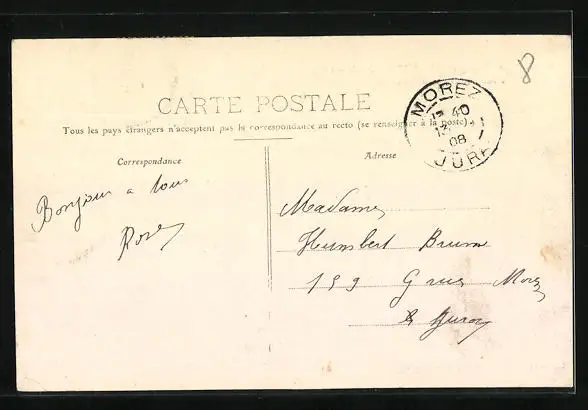 8
CARTE POSTALE
Tous les pays étrangers n'acceptent pas la correspondance au recto (se renseigner à la poste)
MOREZ
40
08
JURA
Correspondance
Adresse
Bonjour a tous
Rose
Madame
Humbert Brune
159 G rue Morez
Jura